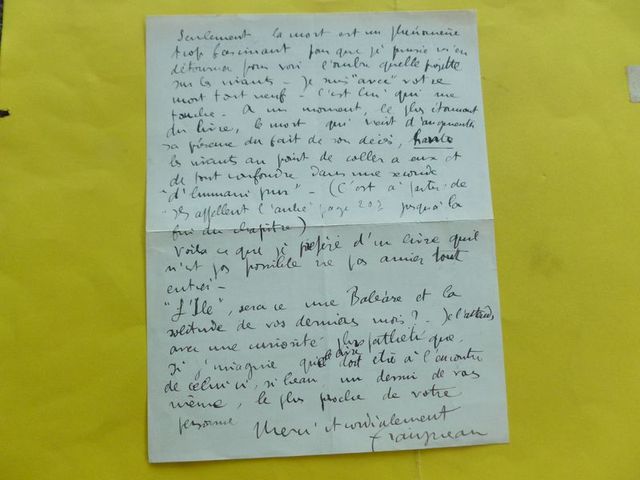 Seulement la mort est un phénomène
trop fascinant pour que je puisse m'en
détourner pour voir l'ombre qu'elle projette
sur les vivants - Je suis "avec" votre
mort tout neuf - C'est lui qui me
touche - A un moment, le plus étonnant
du livre, le mort qui vient d'augmenter
sa présence du fait de son décès, hante
les vivants au point de coller à eux et
de tout confondre dans une seconde
"d'humain pur" - (C'est à partir de
"Ils appellent l'autre" page 207 jusqu'à la
fin du chapitre)
Voilà ce que je préfère d'un livre qu'il
n'est pas possible ne pas aimer tout
entier -
"L'Ile", sera ce une Baléare et la
solitude de vos derniers mois ? - Je l'attends
avec une curiosité plus pathétique
si j'imagine qu'elle doit être à l'encontre
de celui ci, si beau, un dessin de vous
même, le plus proche de votre
personne
Merci et cordialement